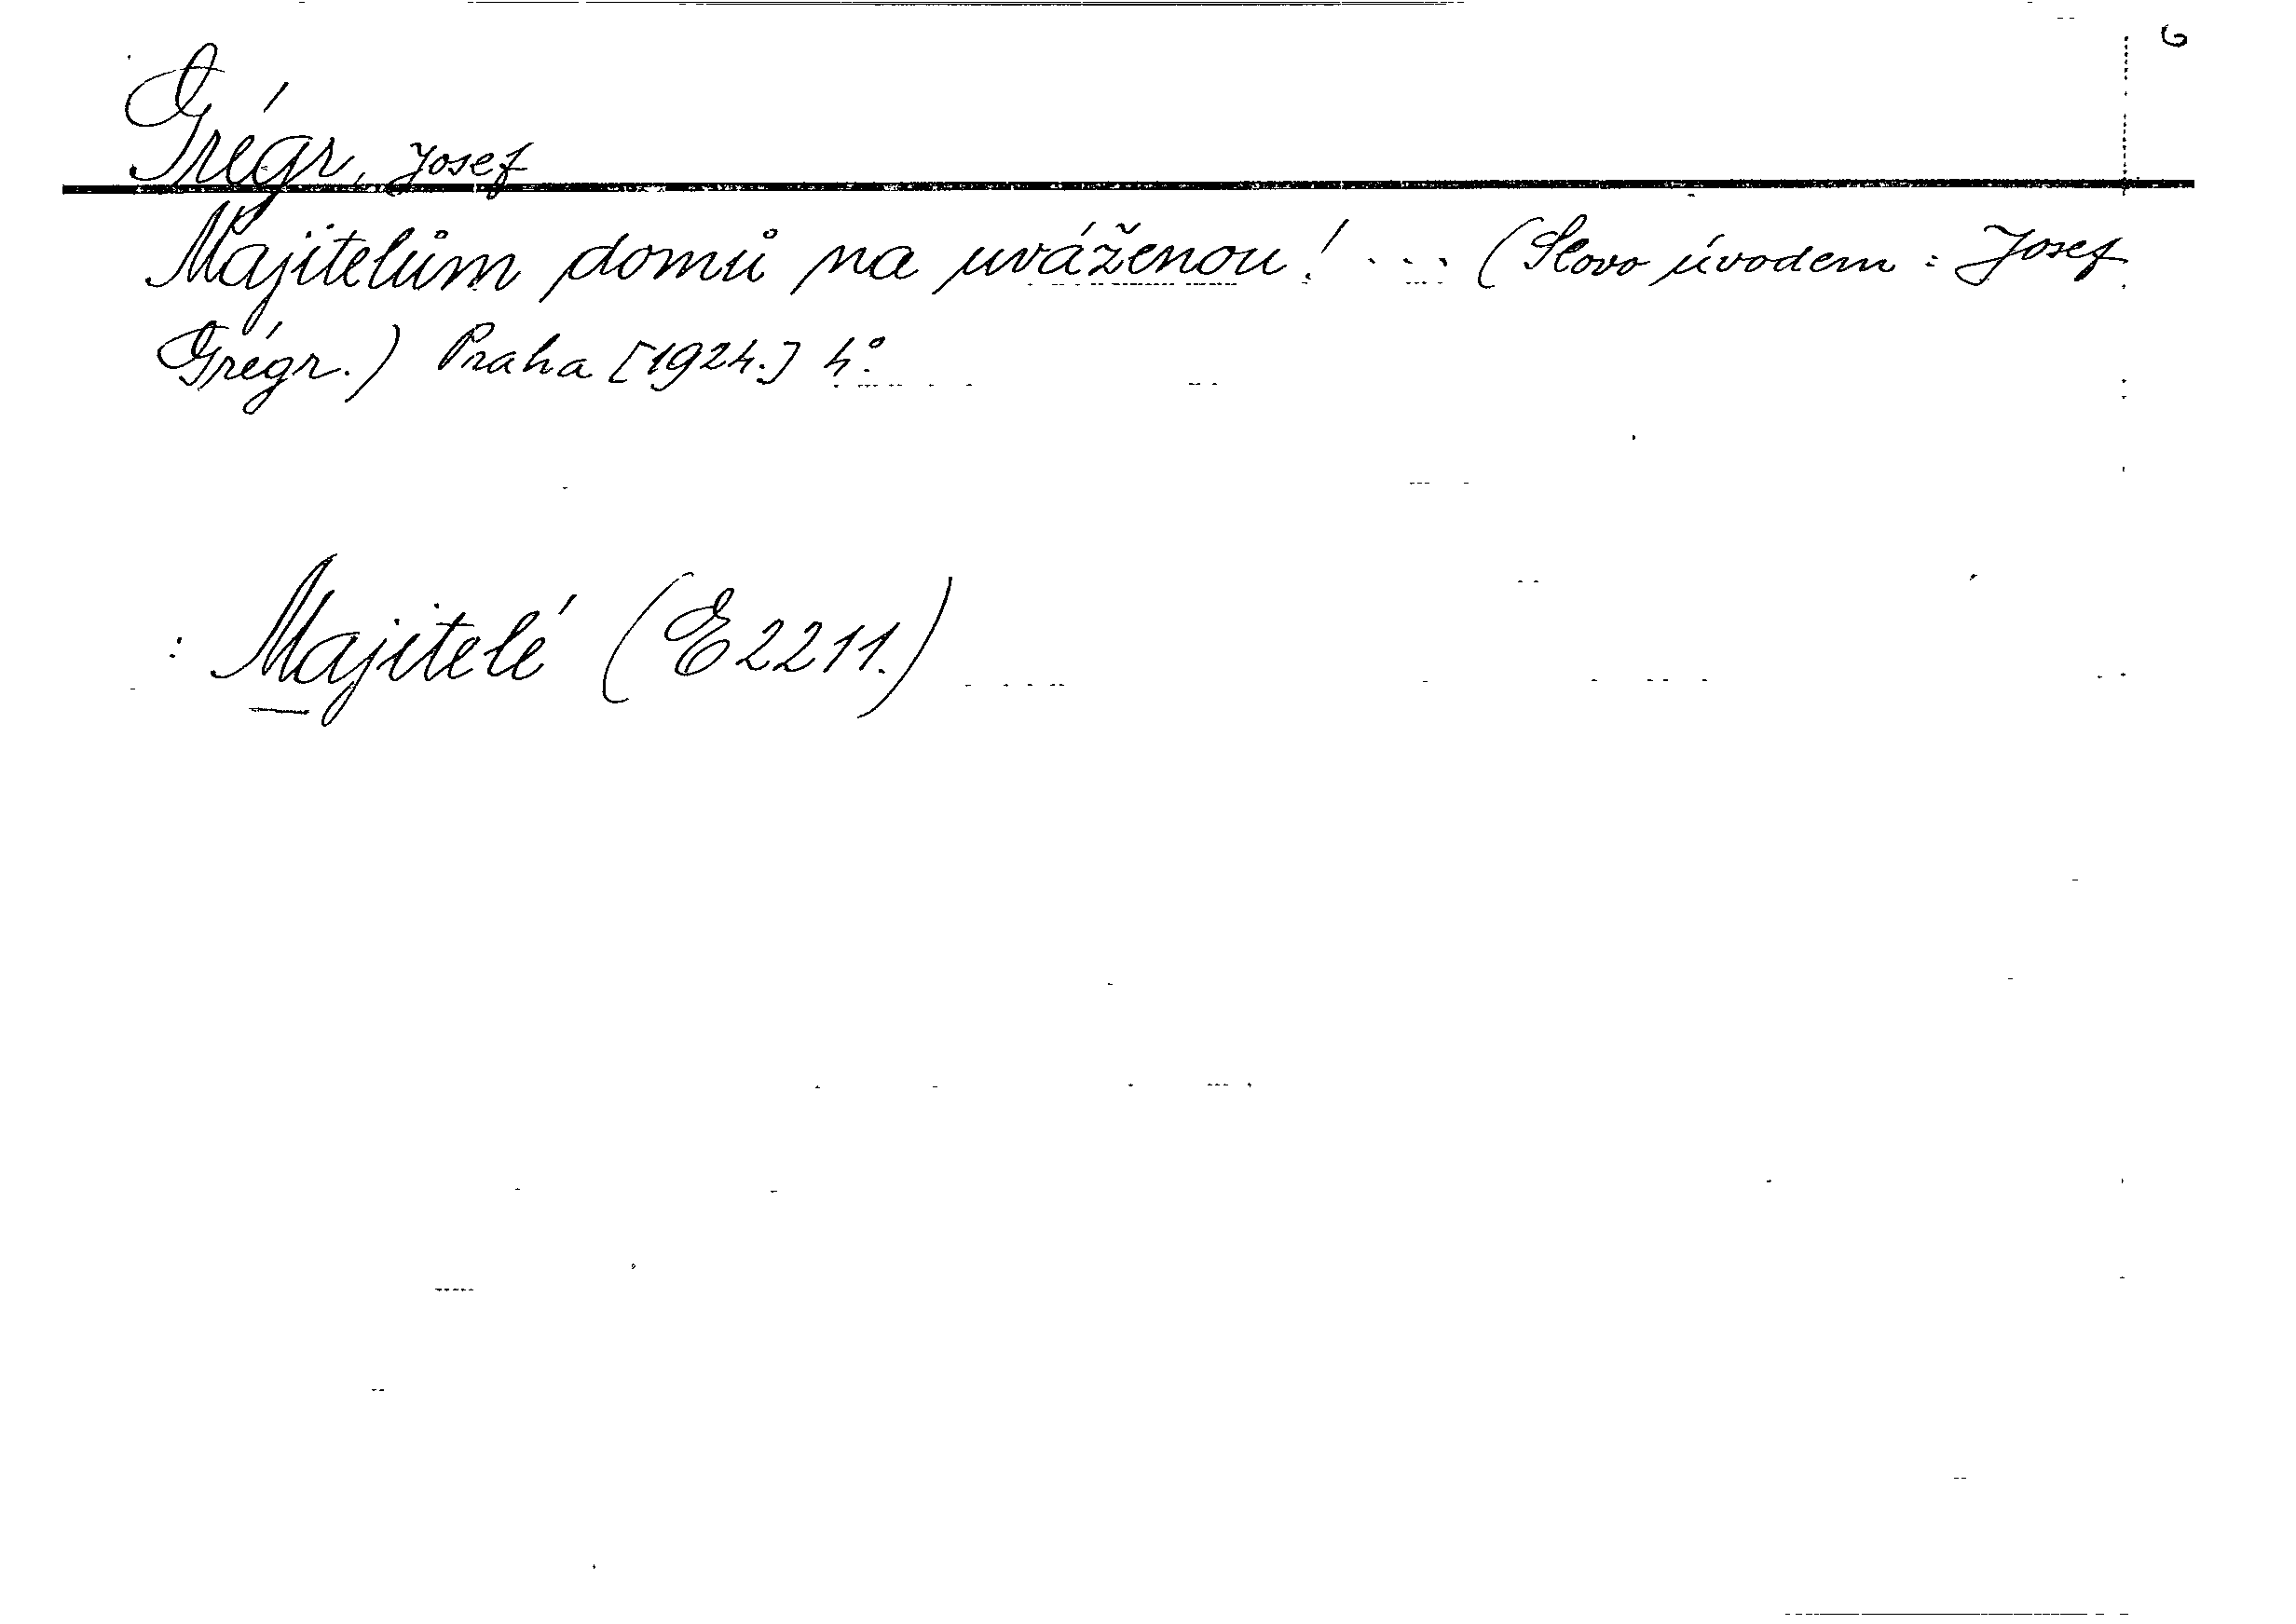 Grégr, Josef
Majitelům domů na uváženou! ... (Slovo úvodem: Josef
Grégr.) Praha [1924.] 4°.
: Majitelé (E 2211.)